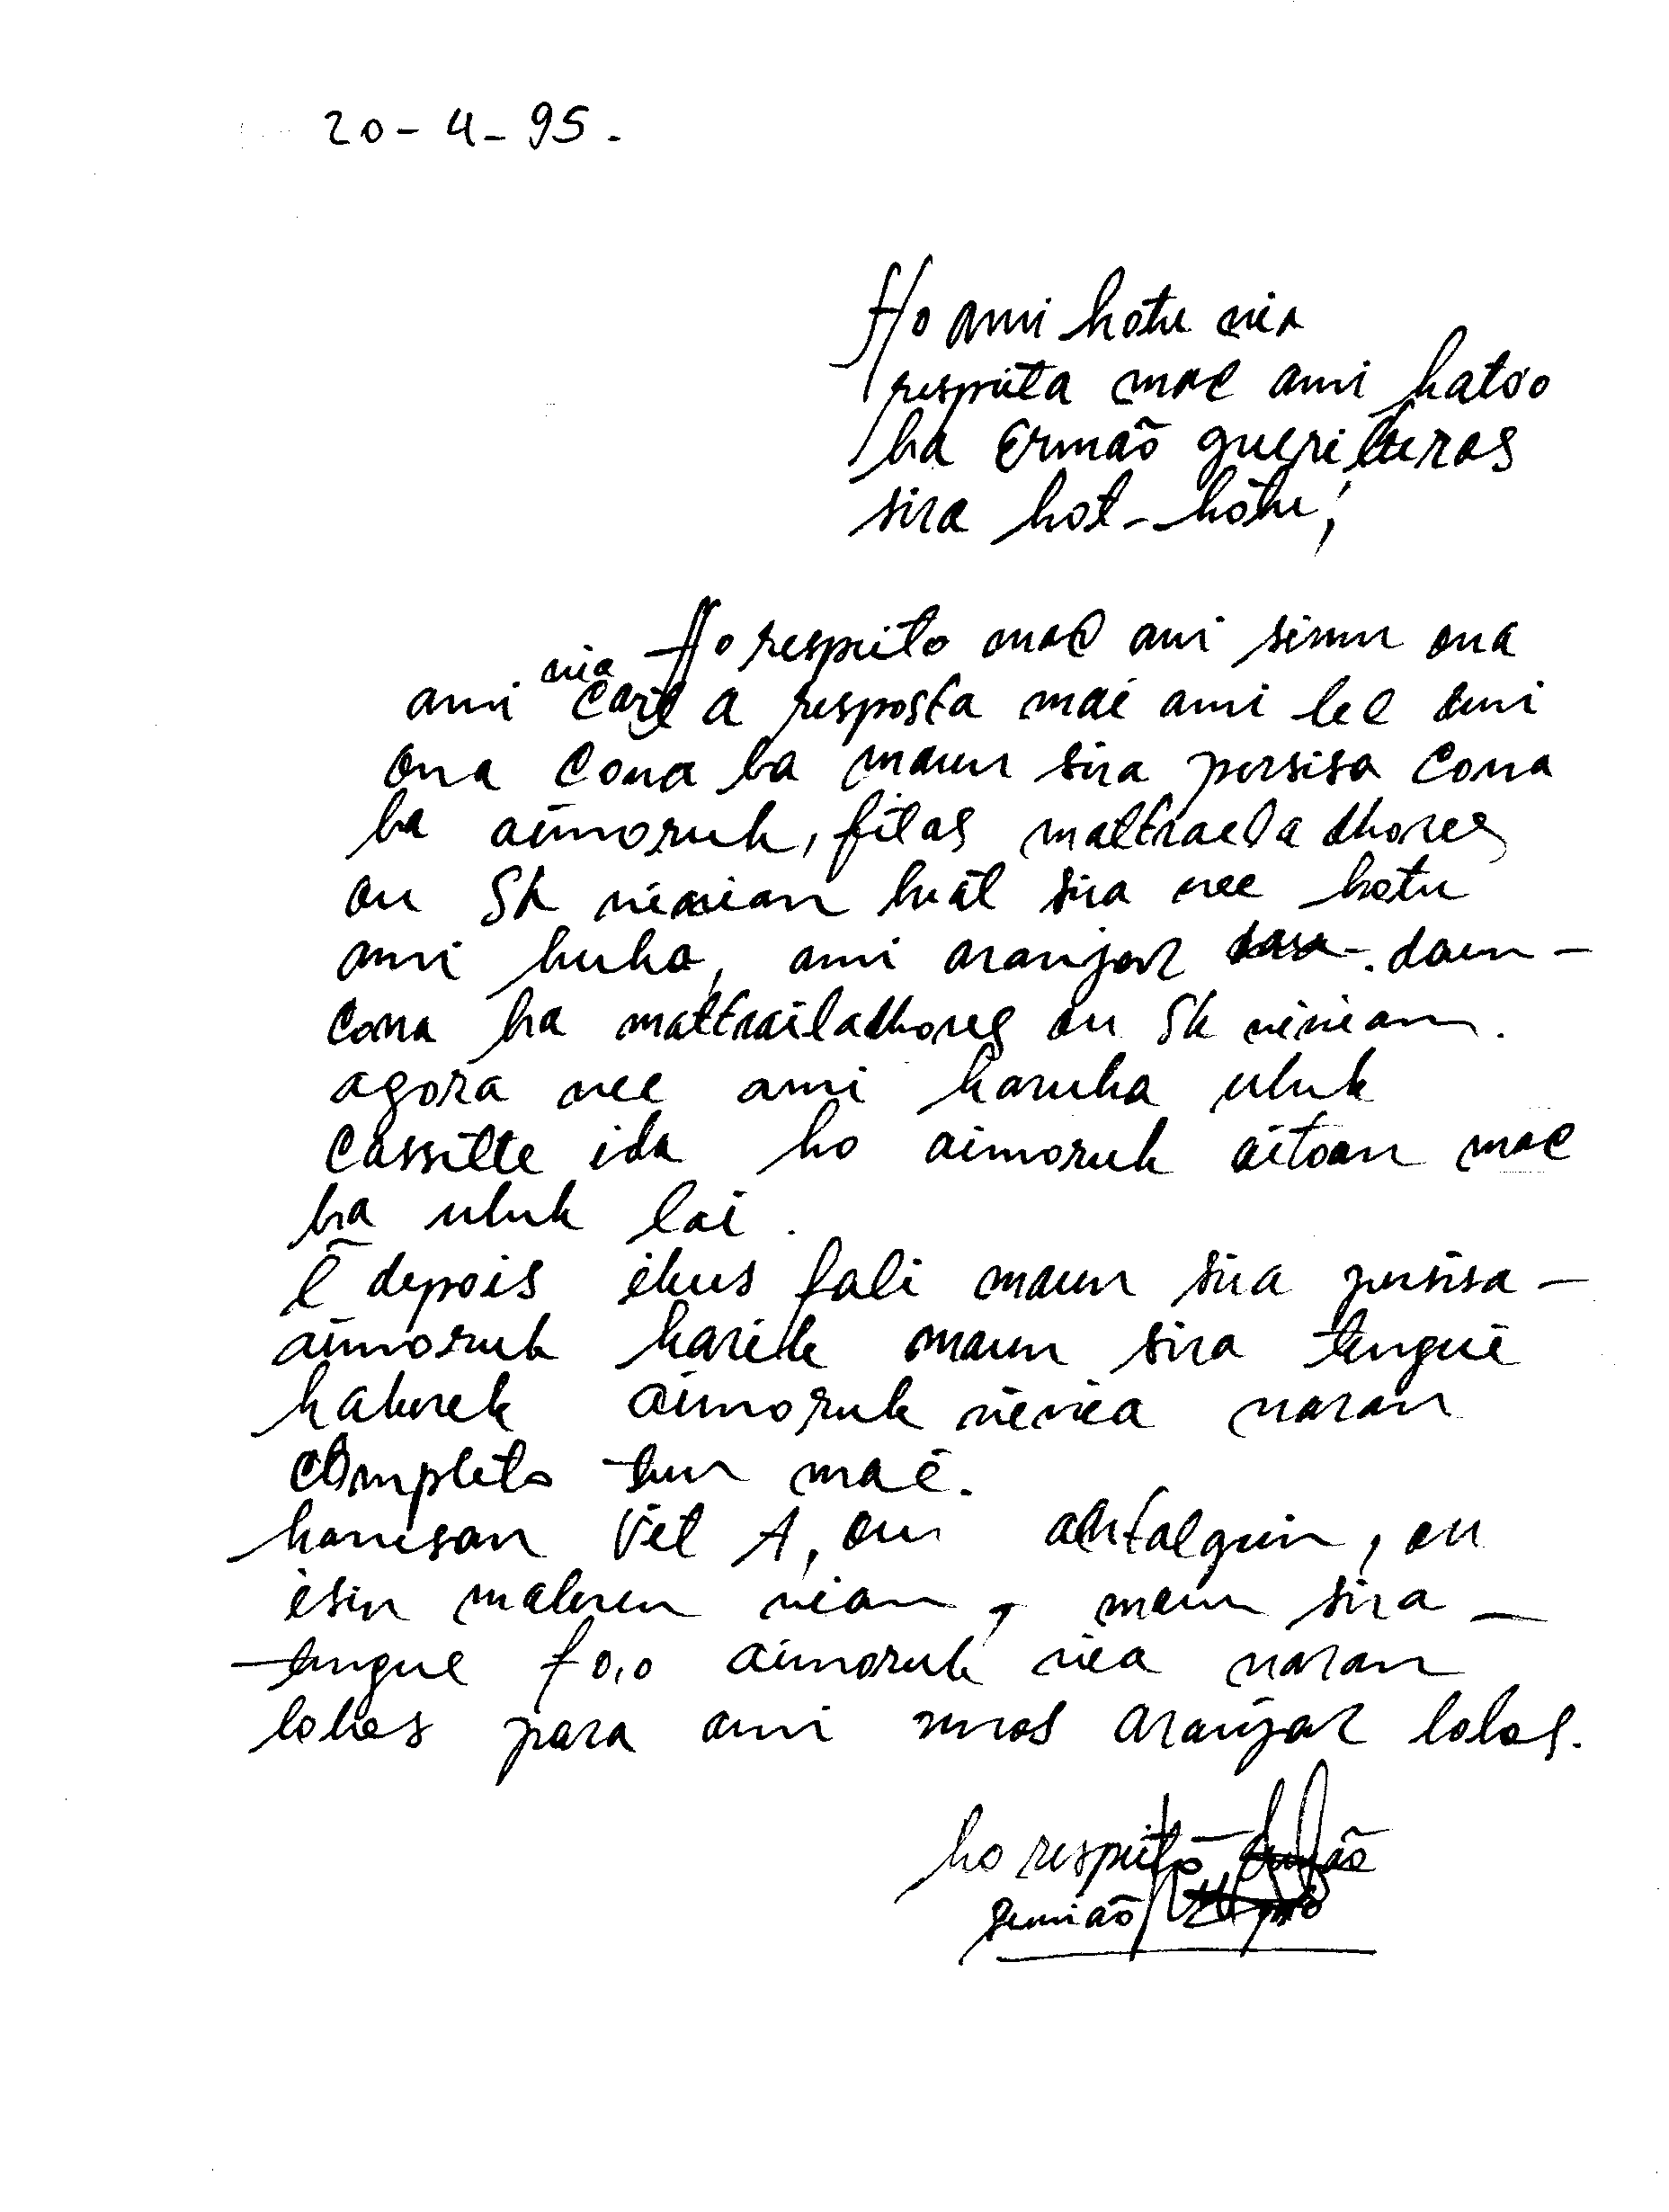 20-4-95.
Ho ami hotu nia
respeita mae ami hato'o
ba Ermão guerilleras
sira hot-hotu;
Ho respeito mae ami simu ona
ami nia a resposta mai ami lee ami
ona cona ba maun sira persisa cona
ba aimoruk, fitas
ou Sk ninian buat sira nee hotu
ami buka, ami aranjar daun-
cona ba ou Sk ninian.
agora nee ami haruka uluk
Cassitte ida ho aimoruk aitoan mae
ba uluk lai.
E depois ikus fali maun sira persisa-
aimoruk karik maun sira tengue
hakerek aimoruk ninia naran
completo tun mae.
hanesan Vit A, ou, ou
isin maluren nian, maun sira-
tengue fo,o aimoruk nia naran
lolos para ami mos aranjar lolos.
ho respeito